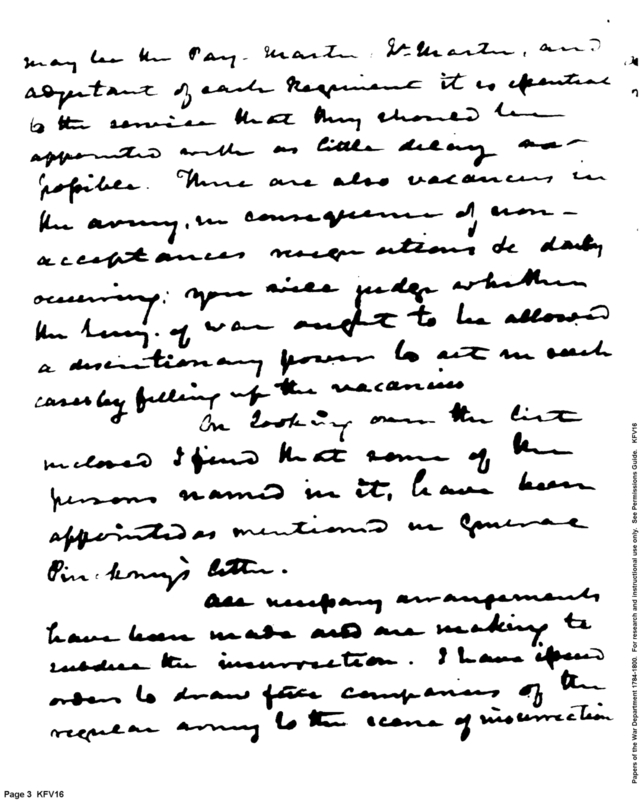 may be the Pay-Master, Qr Master, and
adjutant of each Regiment it is essential
to the service that they should be
appointed with as little delay as
possible. There are also vacancies in
the army, in consequence of non-
acceptances resignations &c daily
occurring; you will judge whether
the Secy. of war ought to be allowed
a discretionary power to act in such
cases by filling up the vacancies
On looking over the list
inclosed I find that some of the
persons named in it, have been
appointed as mentioned in General
Pinckney's letter.
All necessary arrangements
have been made and are making to
subdue the insurrection. I have issued
orders to draw five companies of the
regular army to the scene of insurrection
Page 3 KFV16
Papers of the War Department 1784-1800. For research and instructional use only. See Permissions Guide. KFV16